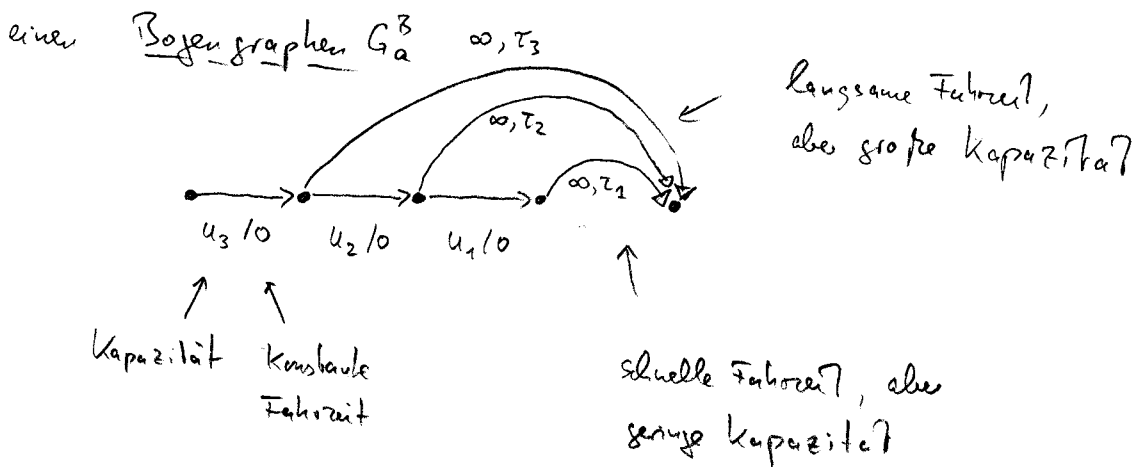 einen Bogengraphen G_a^B
∞, τ₃
langsame Fahrzeit,
aber große Kapazität
∞, τ₂
∞, τ₁
u₃/0 u₂/0 u₁/0
Kapazität konstante
Fahrzeit
schnelle Fahrzeit, aber
geringe Kapazität